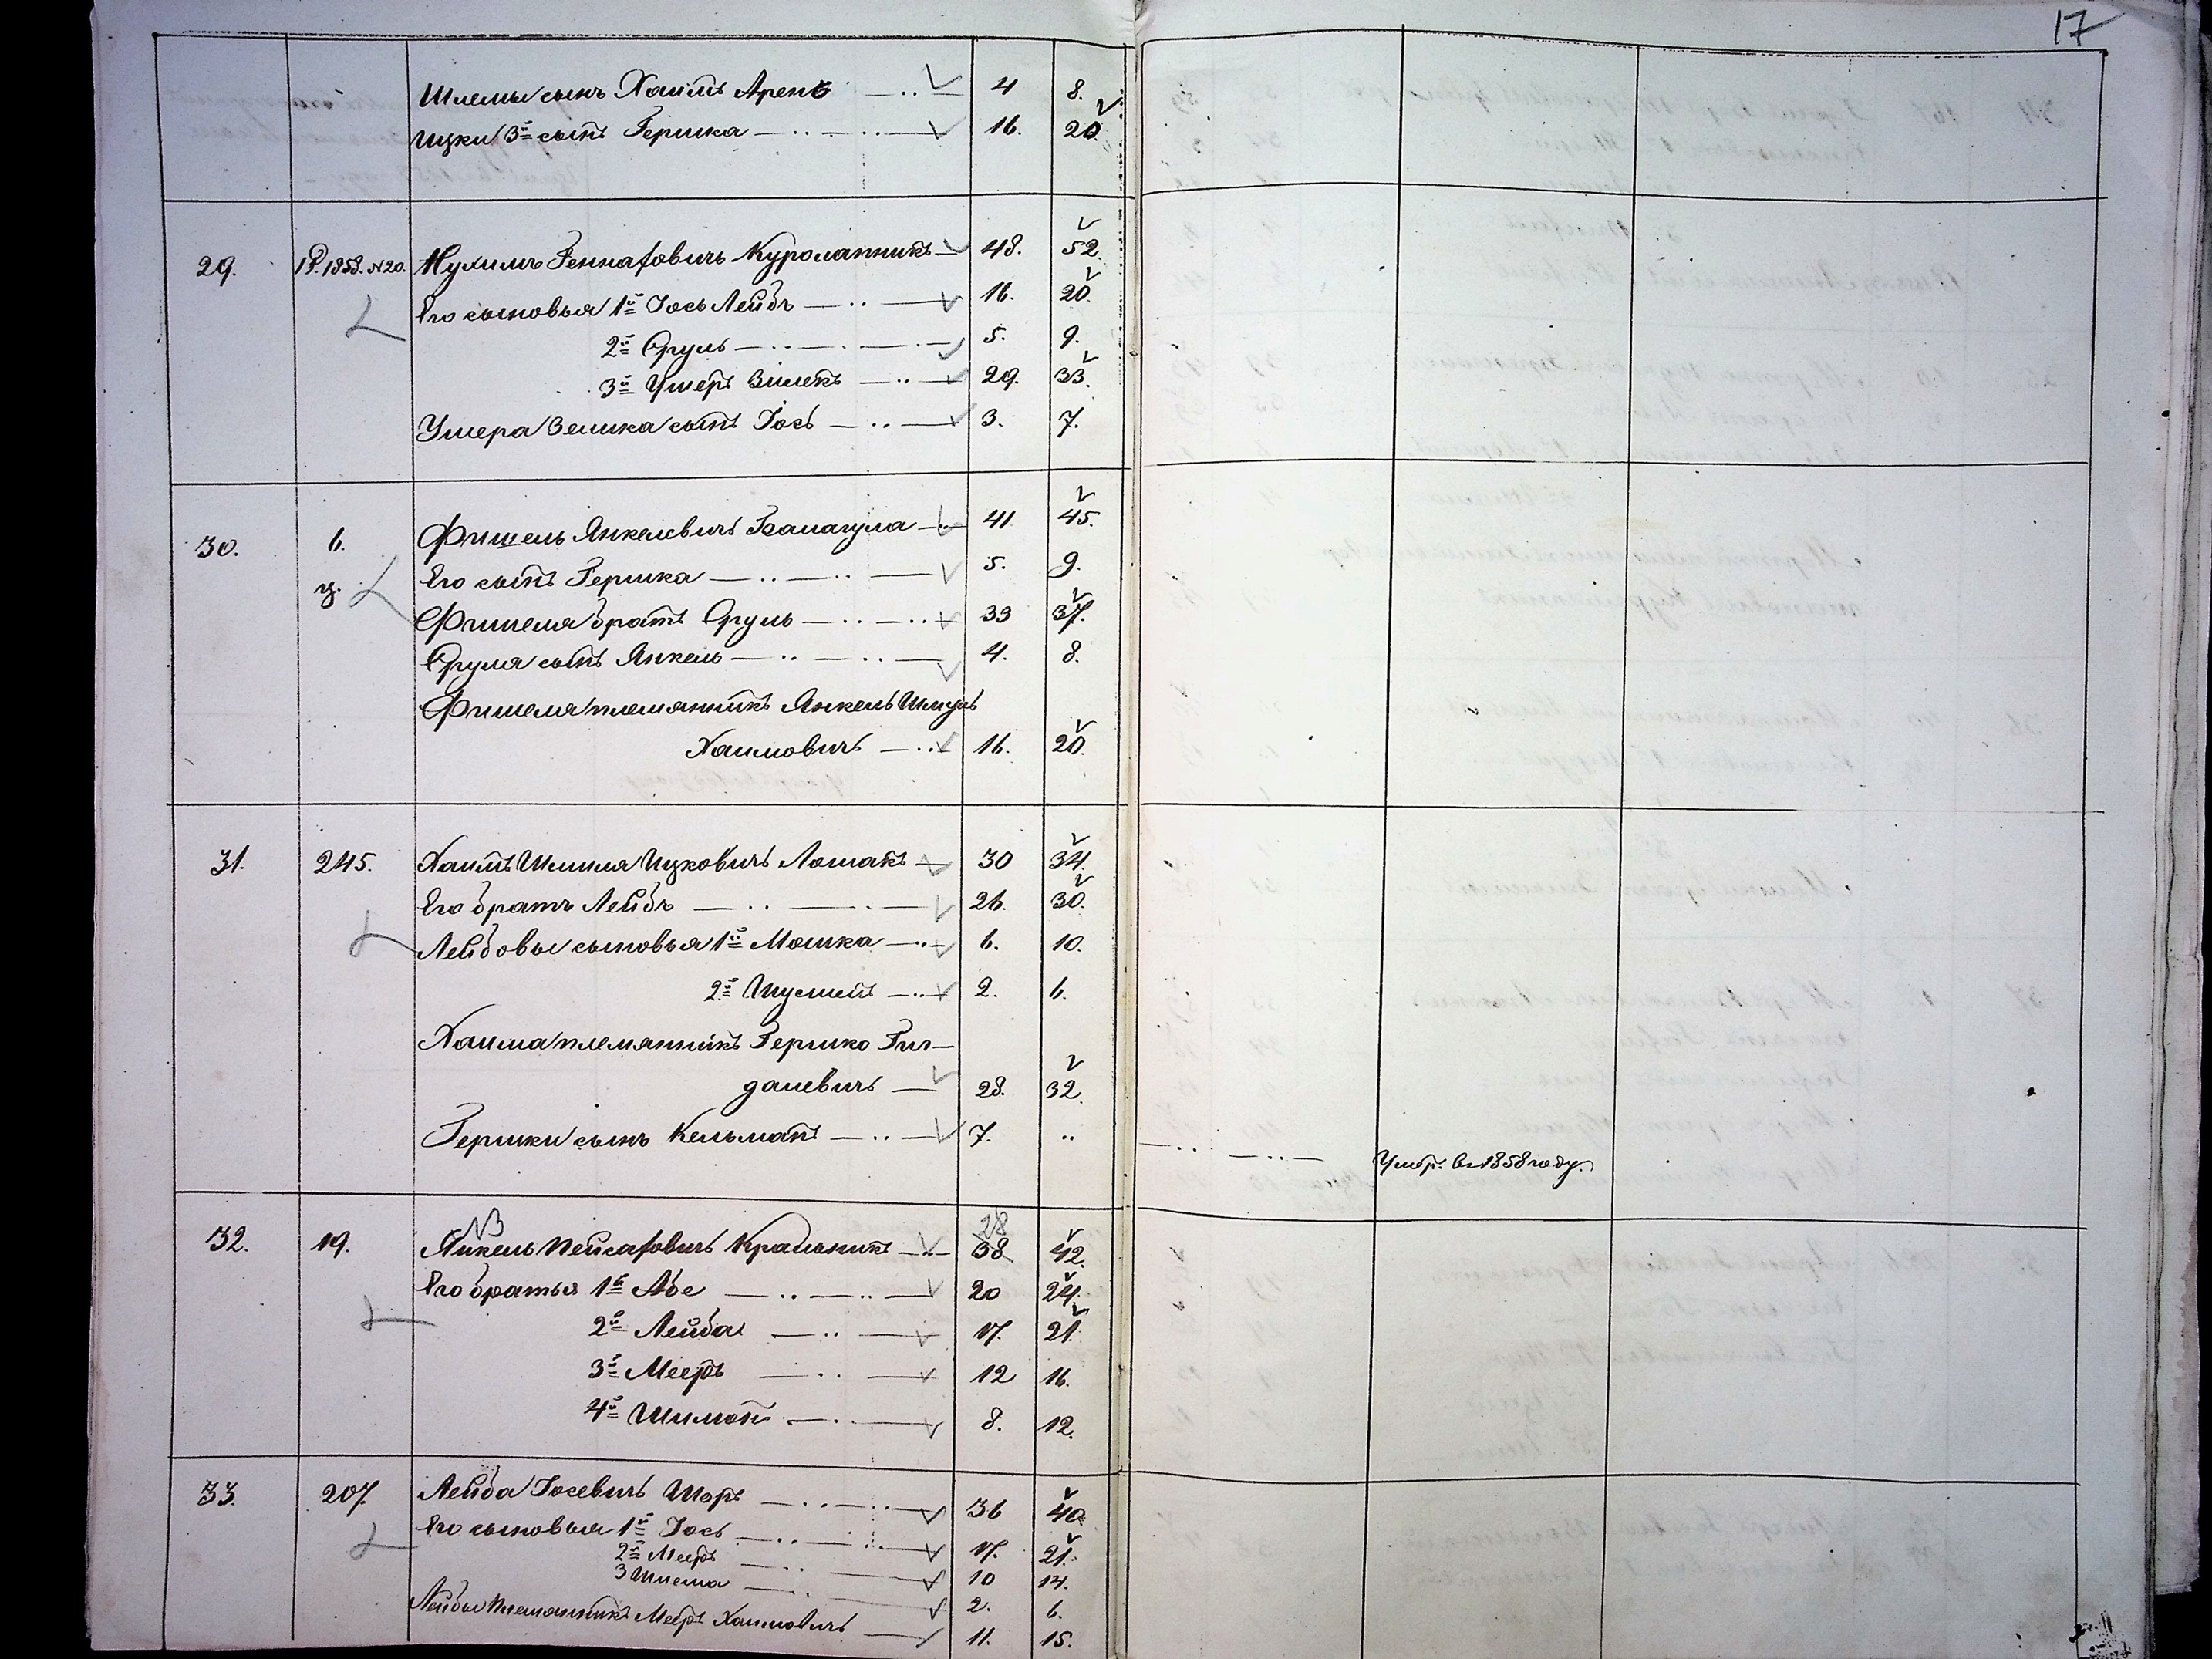 17
Шлемы сынъ Хаимъ Аренъ 4 8.
Ицки 3й сынъ Гершка 16. 20.
29. 1858. №20. Нухимъ Куролапникъ 48. 52.
Его сыновья 1й Іось Лейбъ 16. 20.
2й Сруль 5. 9.
3й Ушеръ Зелекъ 29. 33.
Ушера Зелика сынъ Іось 3. 7.
30. 6. Фишель Янкелевичъ Балагула 41 45.
Его сынъ Гершка 5. 9.
Фишеля братъ Сруль 33 37.
Сруля сынъ Янкель 4. 8.
Фишеля племянникъ Янкель Шмуль
Хаимовичъ 16. 20.
31. 245. Хаимъ Шмиля Ицковичъ Лошакъ 30 34.
Его братъ Лейбъ 26. 30.
Лейбовы сыновья 1й Мошка 6. 10.
2й 2. 6.
Хаима племянникъ Гершко Гит-
далевичъ 28. 32.
Гершки сынъ Кельманъ 7. ..
Умер. въ 1858 году.
NB 28
32. 19. Янкель Пейсаховичъ 38 42.
Его братья 1й Абе 20 24.
2й Лейба 17. 21.
3й Мееръ 12 16.
4й Шимон 8. 12.
33. 207. Лейба Іосевичъ Шоръ 36 40.
Его сыновья 1й Іось 17. 21.
2й Мееръ 10 14.
3 Шлема 2. 6.
Лейбы племянникъ Мееръ Хаимовичъ 11. 15.